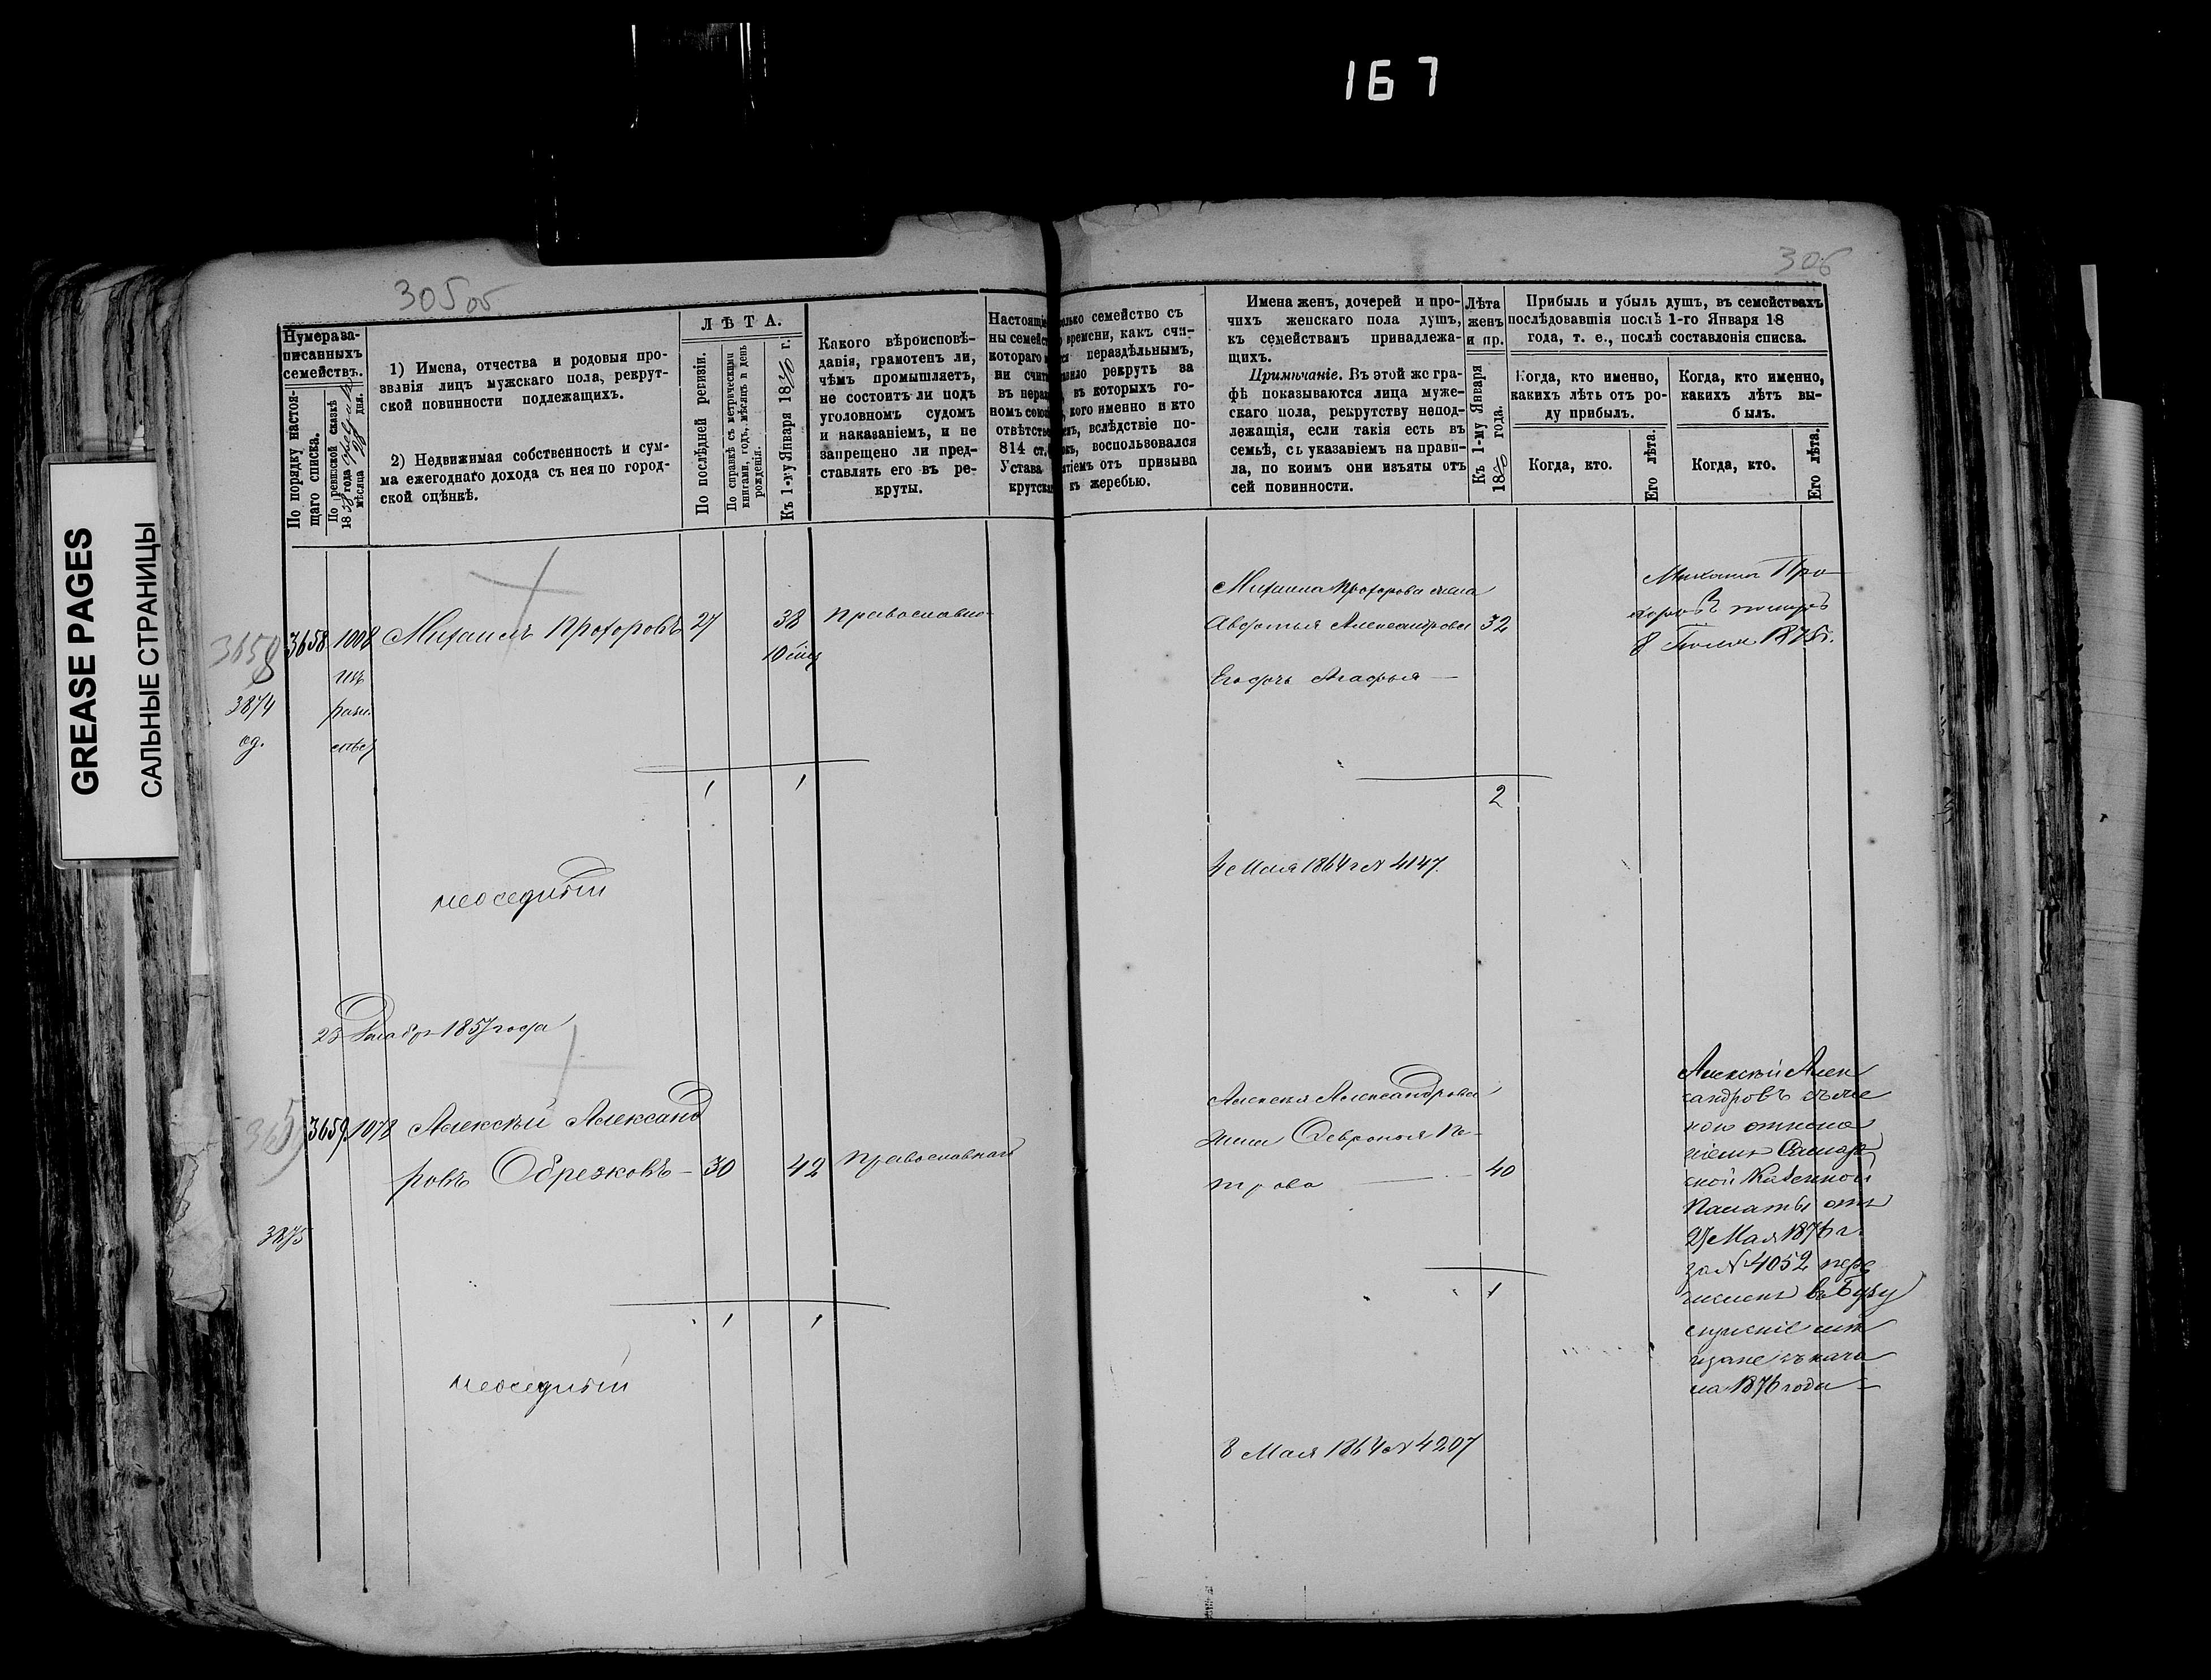 167
GREASE PAGES
САЛЬНЫЕ СТРАНИЦЫ
305 об
306
Нумера за-
писанныхъ
семействъ.
По порядку настоя-
щаго списка.
По ревизской сказкѣ
18 года
мѣсяца дня.
1) Имена, отчества и родовыя про-
званія лицъ мужскаго пола, рекрут-
ской повинности подлежащихъ.
2) Недвижимая собственность и сум-
ма ежегоднаго дохода съ нея по город-
ской оцѣнкѣ.
ЛѢТА.
По послѣдней ревизіи.
По справкѣ съ метрическими
книгами, годъ, мѣсяцъ и день
рожденія.
Къ 1-му Января 1870 г.
Какого вѣроисповѣ-
данія, грамотенъ ли,
чѣмъ промышляетъ,
не состоитъ ли подъ
уголовномъ судомъ
и наказаніемъ, и не
запрещено ли пред-
ставлять его въ ре-
круты.
Настоящі
ны семейс
котораго
ни счит
въ нераз
номъ союз
отвѣтств
814 ст.
Устава
крутска
олько семейство съ
времени, какъ счи-
нераздѣльнымъ,
рекрутъ за
въ которыхъ го-
кого именно и кто
вслѣдствіе по-
воспользовался
ятіемъ отъ призыва
къ жеребью.
Имена женъ, дочерей и про-
чихъ женскаго пола душъ,
къ семействамъ принадлежа-
щихъ.
Примѣчаніе. Въ этой же гра-
фѣ показываются лица муже-
скаго пола, рекрутству непод-
лежащія, если такія есть въ
семьѣ, съ указаніемъ на прави-
ла, по коимъ они изъяты отъ
сей повинности.
Лѣта
женъ
и пр.
Къ 1-му Января
1870 года.
Прибыль и убыль душъ, въ семействахъ
послѣдовавшія послѣ 1-го Января 18
года, т. е., послѣ составленія списка.
Когда, кто именно,
какихъ лѣтъ отъ ро-
ду прибылъ.
Когда, кто.
Его лѣта.
Когда, кто именно,
какихъ лѣтъ вы-
былъ.
Когда, кто.
Его лѣта.
3658 3658 1008 Михаилъ Прохоровъ 27 38 Православно
3874
од.
1 1
неоседлый
Михаила Прохорова жена
Авдотья Александрова 32
Его дочь Агафья —
2
4 Мая 1864 г № 4147.
Михаилъ Про-
хоровъ померъ
8 Іюля 1875 г.
23 Декабря 1857 года
3659 3659 1078 Алексѣй Александ
ровъ Обрезковъ — 30 42 Православнаго
3875
1 1
неоседлый
Алексѣя Александрова
жена Февронья Пе-
трова 40
1
8 Мая 1864 № 4207
Алексѣй Алек
сандровъ съ же
ною отноше
ніемъ Самар
ской Казенной
Палаты отъ
27 Мая 1876 г.
за № 4052 пере
численъ въ Бугу
съ нача
ла 1876 года —